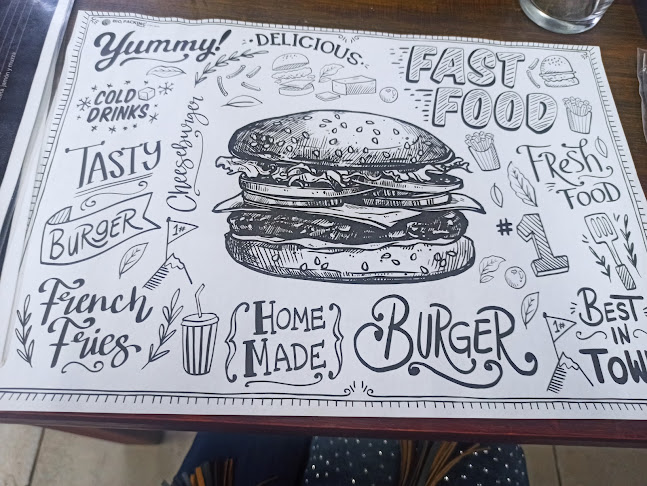 BIO PACKING
Yummy!
DELICIOUS
FAST
FOOD
COLD
DRINKS
Cheeseburger
TASTY
FRESH
FOOD
BURGER
1st
#1
French
Fries
HOME
MADE
BURGER
1st
BEST
IN
TOW